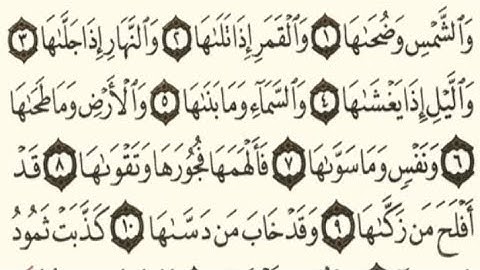 وَٱلشَّمْسِ وَضُحَىٰهَا ١ وَٱلْقَمَرِ إِذَا تَلَىٰهَا ٢ وَٱلنَّهَارِ إِذَا جَلَّىٰهَا ٣
وَٱلَّيْلِ إِذَا يَغْشَىٰهَا ٤ وَٱلسَّمَآءِ وَمَا بَنَىٰهَا ٥ وَٱلْأَرْضِ وَمَا طَحَىٰهَا
٦ وَنَفْسٍ وَمَا سَوَّىٰهَا ٧ فَأَلْهَمَهَا فُجُورَهَا وَتَقْوَىٰهَا ٨ قَدْ
أَفْلَحَ مَن زَكَّىٰهَا ٩ وَقَدْ خَابَ مَن دَسَّىٰهَا ١٠ كَذَّبَتْ ثَمُودُ